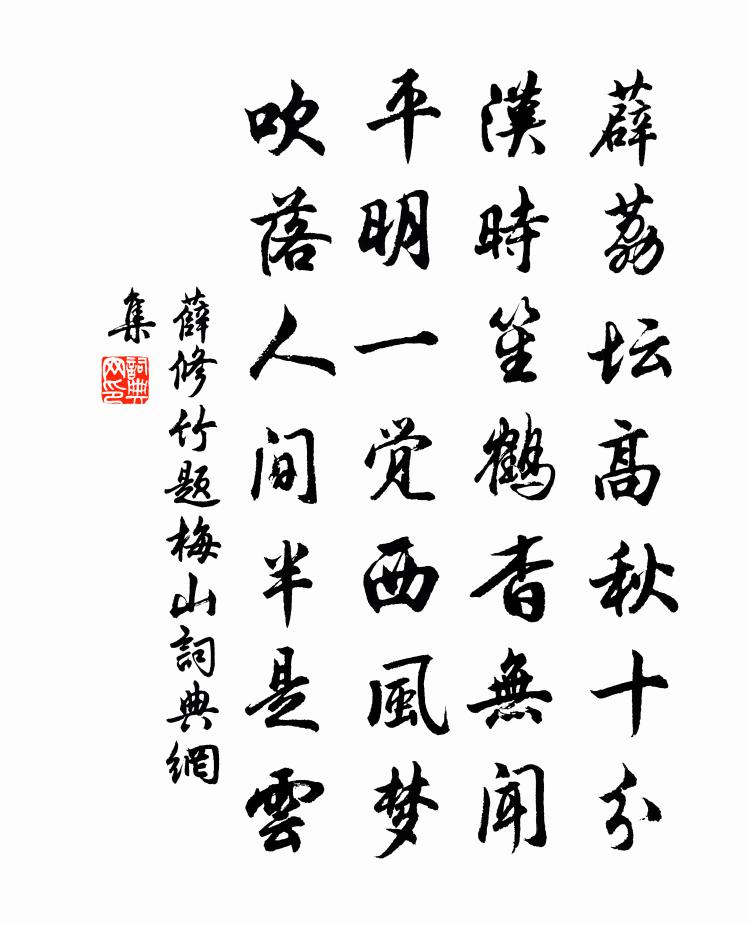 薜荔坛高秋十分
漢時笙鶴杳無聞
平明一觉西風梦
吹落人间半是雲
薛修竹题梅山詞典網
集
詞典
网印